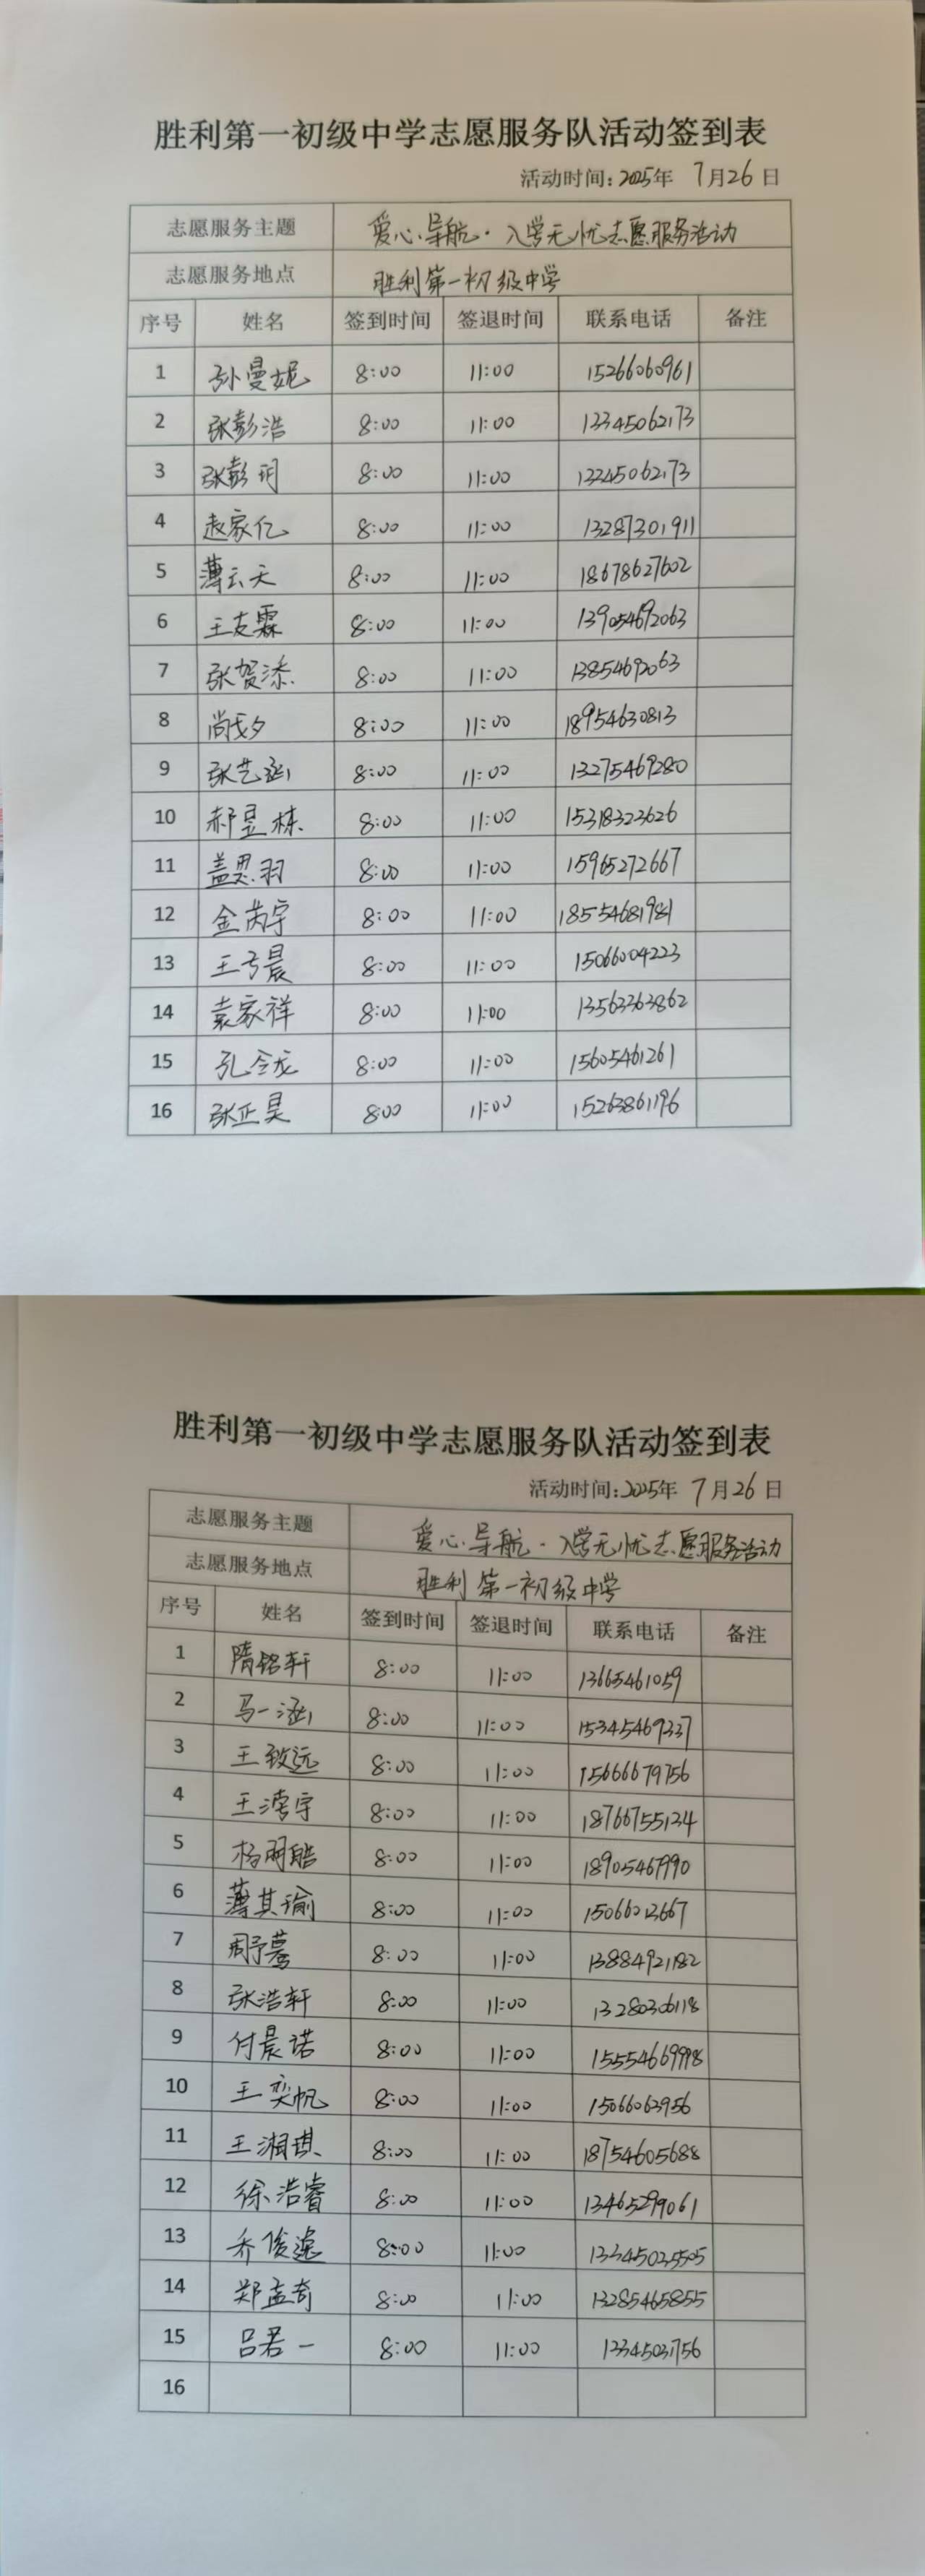 胜利第一初级中学志愿服务队活动签到表
活动时间:2025年 7月26日
志愿服务主题 爱心导航·入学无忧志愿服务活动
志愿服务地点 胜利第一初级中学
序号 姓名 签到时间 签退时间 联系电话 备注
1 孙曼妮 8:00 11:00 15266060961
2 张彭浩 8:00 11:00 13345062173
3 张彭玥 8:00 11:00 13345062173
4 赵家亿 8:00 11:00 13287301911
5 薄云天 8:00 11:00 18678627602
6 王支霖 8:00 11:00 139054692063
7 张贺添 8:00 11:00 13854692063
8 尚夕 8:00 11:00 18954630813
9 张艺涵 8:00 11:00 13275469280
10 郝昱栋 8:00 11:00 15318323626
11 盖思羽 8:00 11:00 15965272667
12 金芮宇 8:00 11:00 18554681981
13 王晨 8:00 11:00 15066004223
14 袁家祥 8:00 11:00 13563363862
15 孔令龙 8:00 11:00 15605461261
16 张正昊 8:00 11:00 15263861196
胜利第一初级中学志愿服务队活动签到表
活动时间:2025年 7月26日
志愿服务主题 爱心导航·入学无忧志愿服务活动
志愿服务地点 胜利第一初级中学
序号 姓名 签到时间 签退时间 联系电话 备注
1 隋铭轩 8:00 11:00 13665461059
2 马一涵 8:00 11:00 15345469337
3 王致远 8:00 11:00 15666679756
4 王宇 8:00 11:00 18766755134
5 杨皓 8:00 11:00 18905467990
6 薄其瑜 8:00 11:00 15066013667
7 周予蓦 8:00 11:00 13884921182
8 张浩轩 8:00 11:00 13280306118
9 付晨诺 8:00 11:00 15554669998
10 王奕帆 8:00 11:00 15066063956
11 王湘琪 8:00 11:00 18754605688
12 徐浩睿 8:00 11:00 13465299061
13 乔俊逸 8:00 11:00 13345035505
14 郑孟奇 8:00 11:00 13285465855
15 吕君一 8:00 11:00 13345031756
16